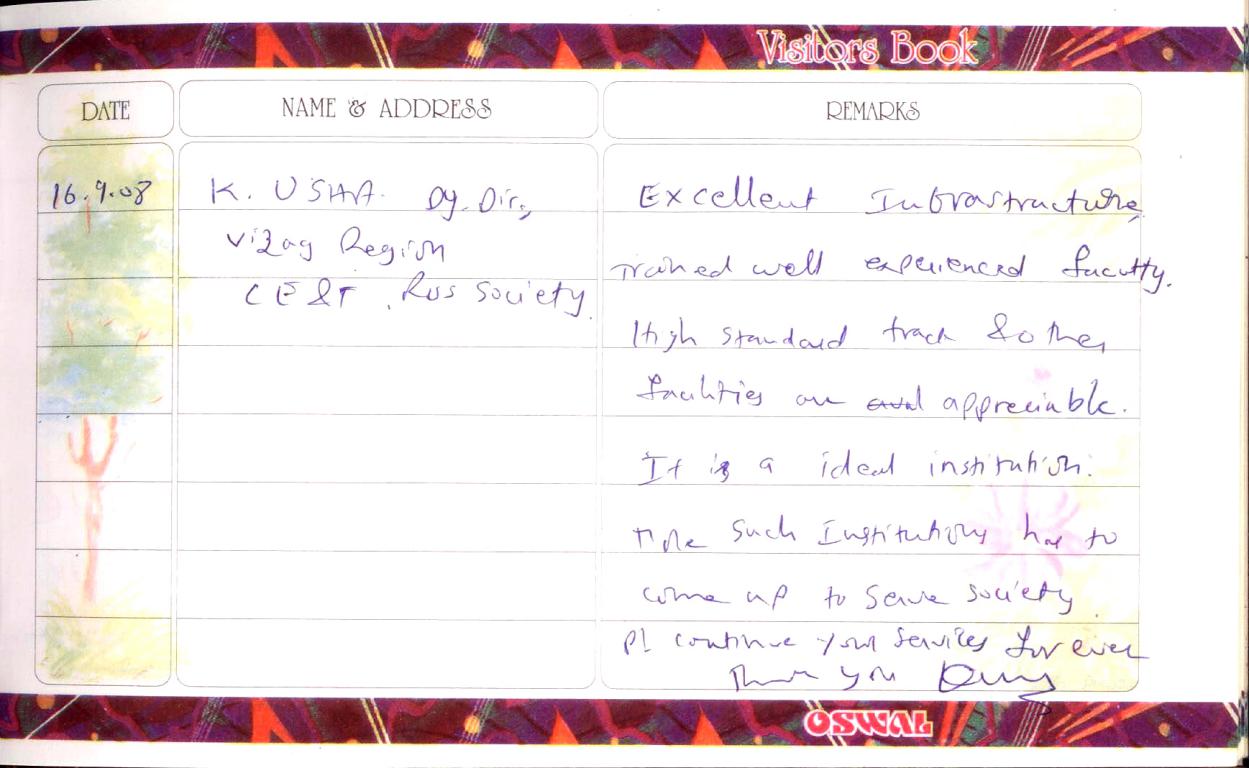 Visitors Book
DATE
NAME & ADDRESS
REMARKS
16.9.08
K. USHA. Dy. Dir,
Vizag Region
CE&T, Rus Society.
Excellent Infrastructure,
Trained well experienced faculty.
High standard track & other
facilities are appreciable.
It is a ideal institution.
More such Institutions has to
come up to serve society.
Pl continue your services for ever
Thank you
OSWAL